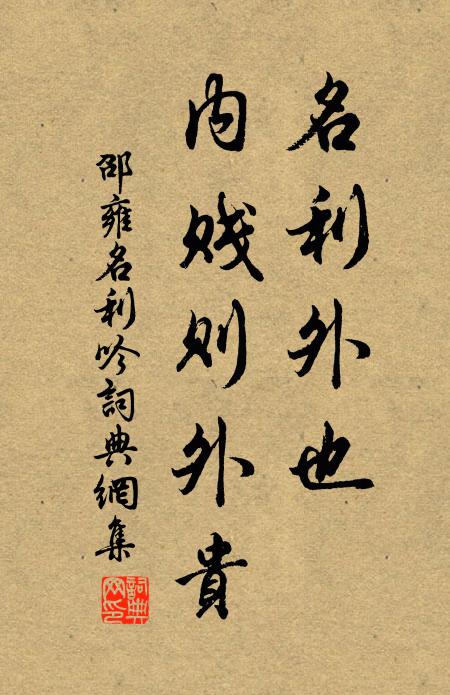 名利外也
内贱则外貴
邵雍名利吟詞典網集
詞典网印